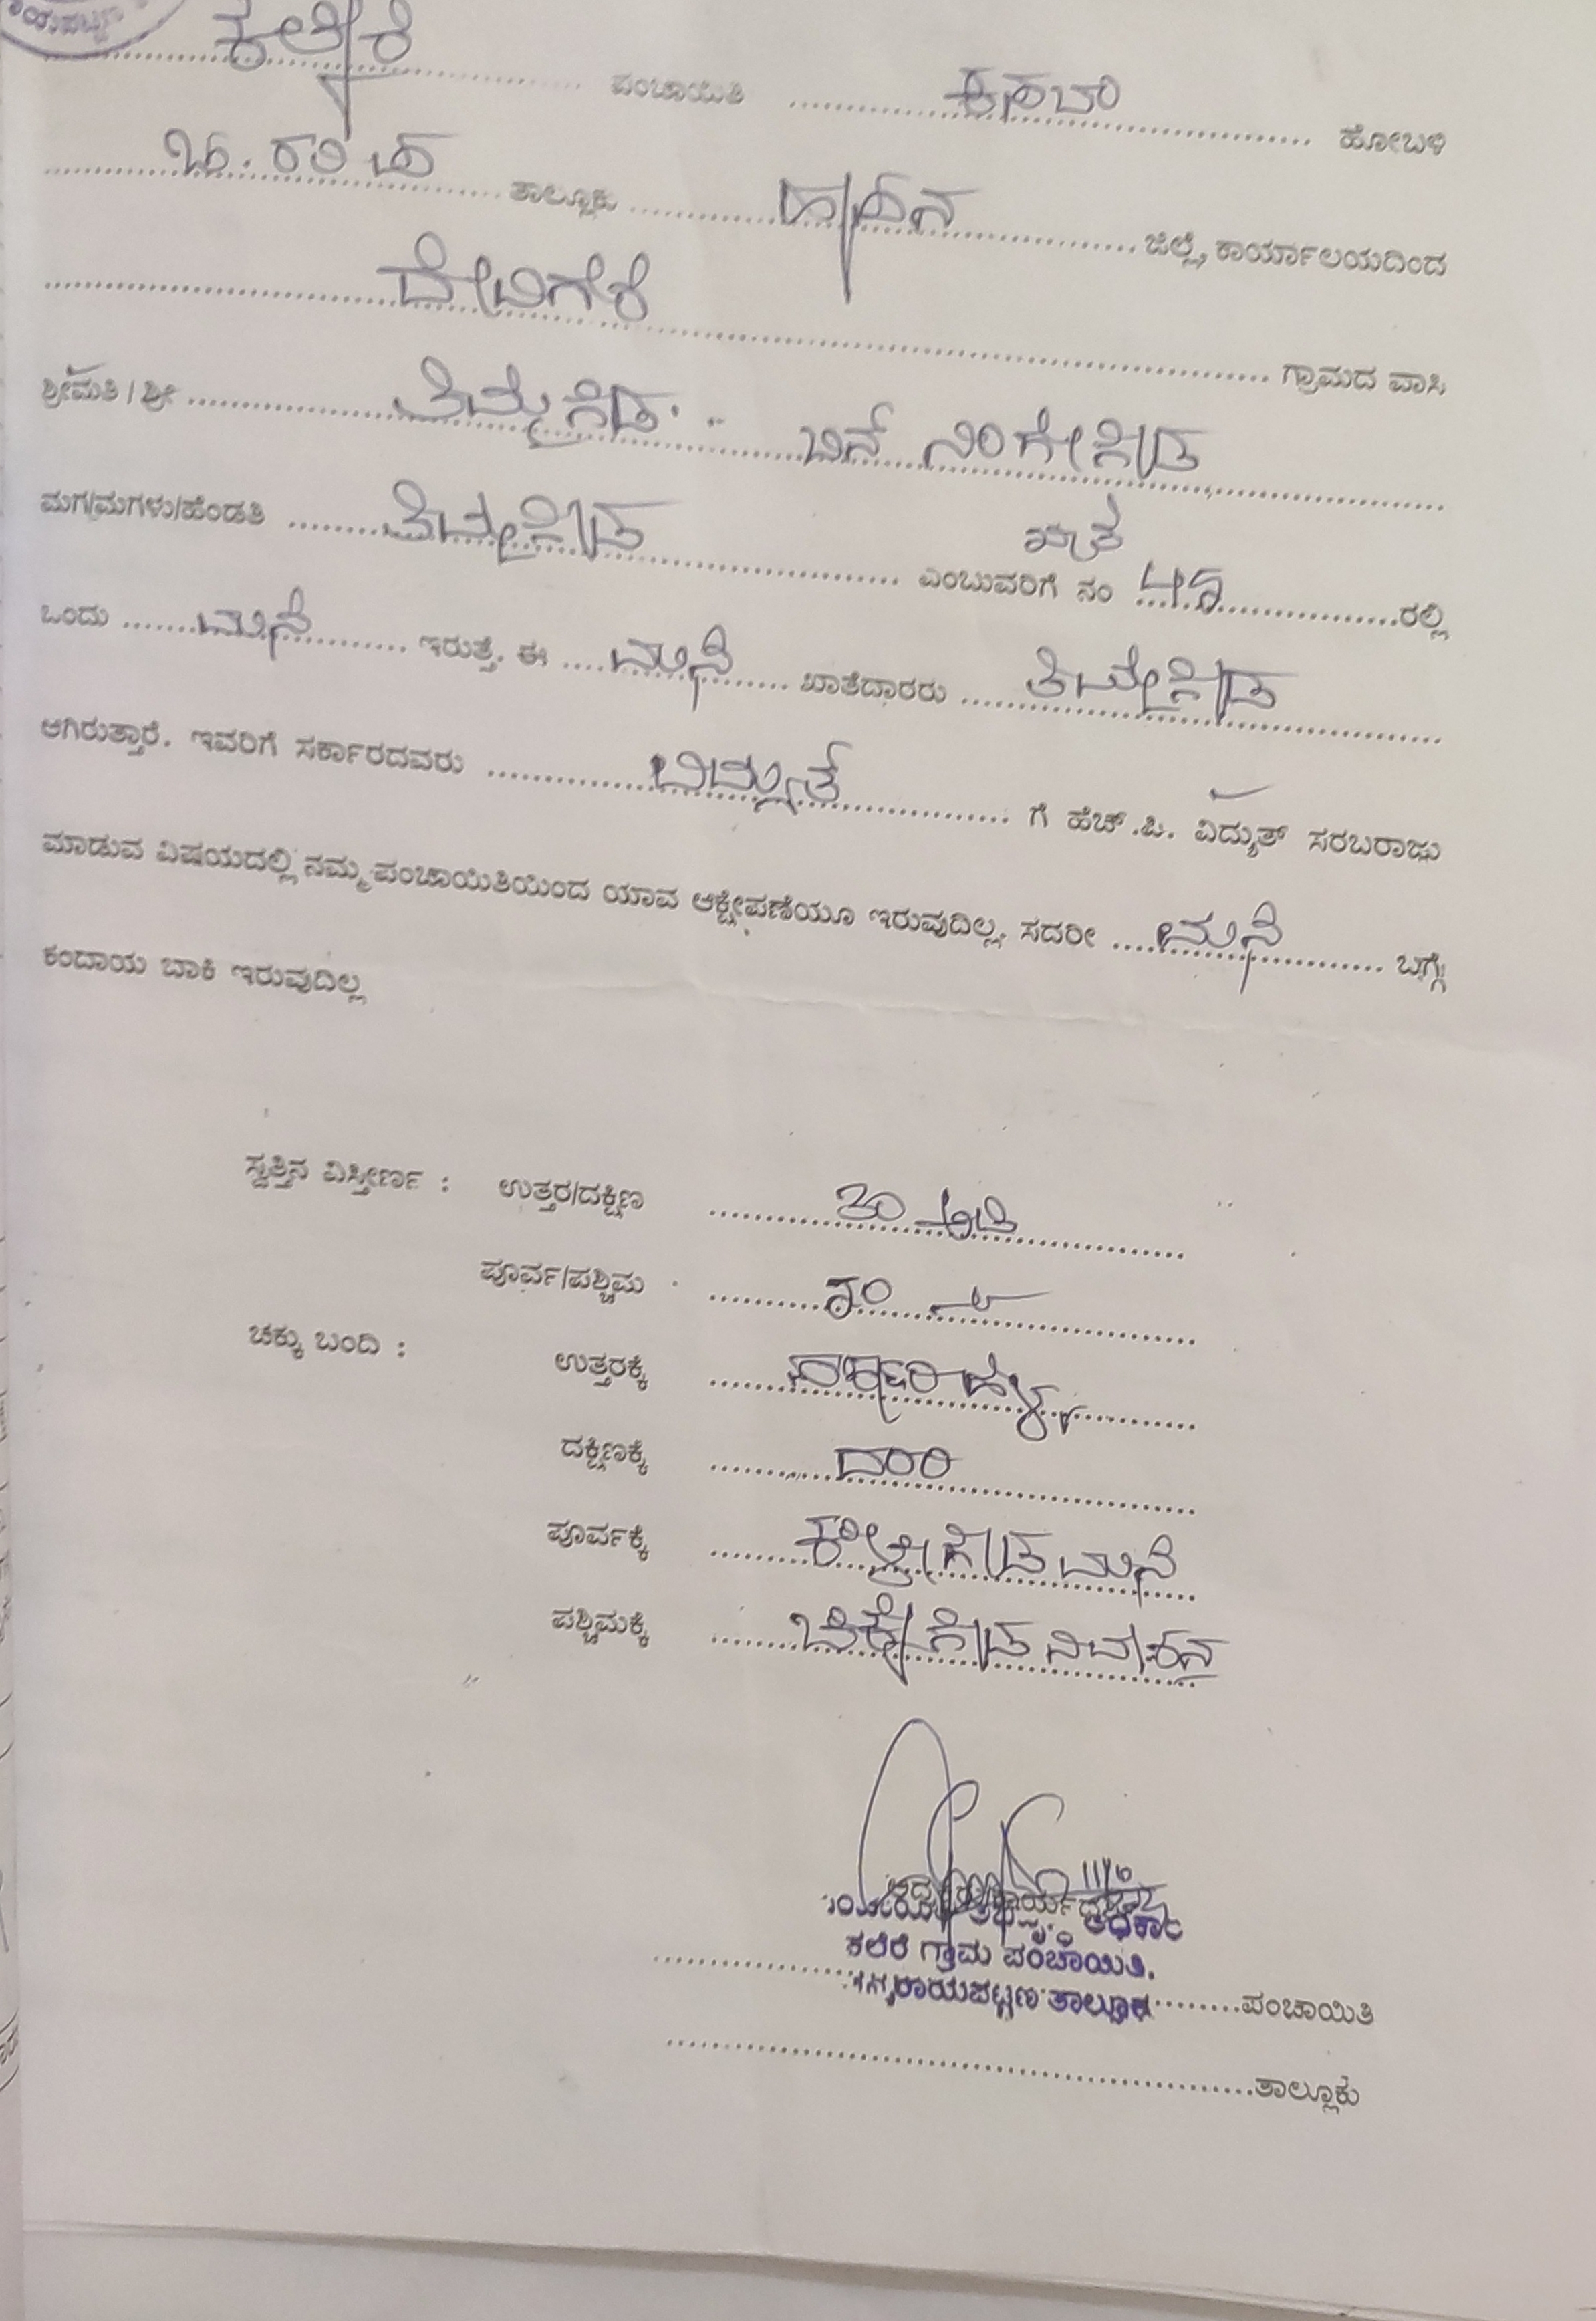 ಕಲ್ಕೆರೆ ಪಂಚಾಯಿತಿ ಕಸಬಾ ಹೋಬಳಿ
ಚ. ರಾ ಪ ತಾಲ್ಲೂಕು ಹಾಸನ ಜಿಲ್ಲೆ, ಕಾರ್ಯಾಲಯದಿಂದ
ದೇವಿಗೆರೆ ಗ್ರಾಮದ ವಾಸಿ
ಶ್ರೀಮತಿ / ಶ್ರೀ ತಿಮ್ಮೇಗೌಡ ಬಿನ್ ನಿಂಗೇಗೌಡ
ಮಗ/ಮಗಳು/ಹೆಂಡತಿ ತಿಮ್ಮೇಗೌಡ ಎಂಬುವರಿಗೆ ನಂ ಖಾತೆ 45 ರಲ್ಲಿ
ಒಂದು ಮನೆ ಇರುತ್ತೆ. ಈ ಮನೆ ಖಾತೆದಾರರು ತಿಮ್ಮೇಗೌಡ
ಆಗಿರುತ್ತಾರೆ. ಇವರಿಗೆ ಸರ್ಕಾರದವರು ಗೆ ಹೆಚ್.ಪಿ. ವಿದ್ಯುತ್ ಸರಬರಾಜು
ಮಾಡುವ ವಿಷಯದಲ್ಲಿ ನಮ್ಮ ಪಂಚಾಯಿತಿಯಿಂದ ಯಾವ ಆಕ್ಷೇಪಣೆಯೂ ಇರುವುದಿಲ್ಲ. ಸದರೀ ಮನೆ ಬಗ್ಗೆ
ಕಂದಾಯ ಬಾಕಿ ಇರುವುದಿಲ್ಲ
ಸ್ವತ್ತಿನ ವಿಸ್ತೀರ್ಣ : ಉತ್ತರ/ದಕ್ಷಿಣ 30 ಅಡಿ
ಪೂರ್ವ/ಪಶ್ಚಿಮ
ಚಕ್ಕು ಬಂದಿ : ಉತ್ತರಕ್ಕೆ ಸರ್ಕಾರಿ ಹಳ್ಳ
ದಕ್ಷಿಣಕ್ಕೆ ದಾರಿ
ಪೂರ್ವಕ್ಕೆ ಕಾಳೇಗೌಡ ಮನೆ
ಪಶ್ಚಿಮಕ್ಕೆ ಚಿಕ್ಕೇಗೌಡ ನಿವಾಶನ
11/6
ಕಲೆರೆ ಗ್ರಾಮ ಪಂಚಾಯಿತಿ.
ರಾಯಪಟ್ಟಣ ತಾಲ್ಲೂಕು ಪಂಚಾಯಿತಿ
ತಾಲ್ಲೂಕು